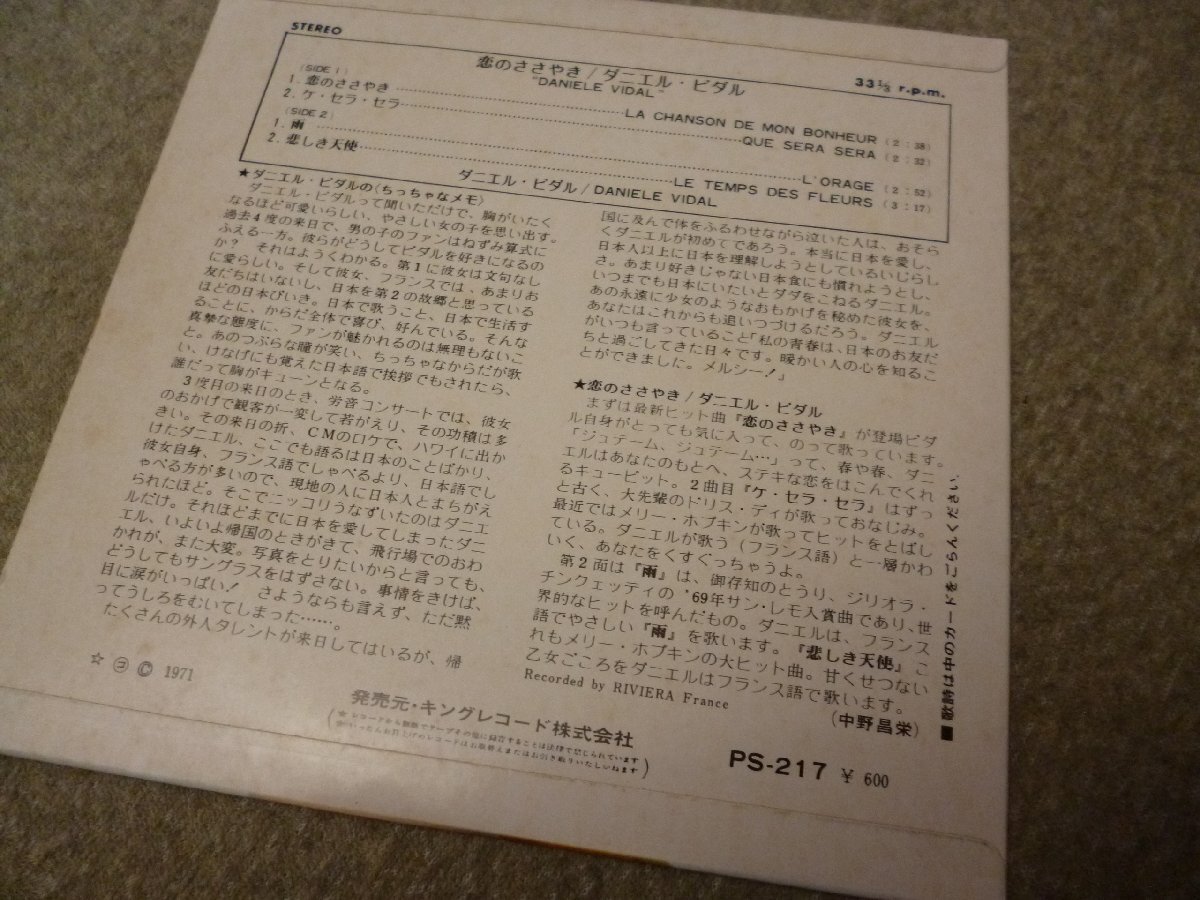 STEREO
33⅓ r.p.m.
恋のささやき / ダニエル・ビダル
"DANIELE VIDAL"
(SIDE 1)
1. 恋のささやき……LA CHANSON DE MON BONHEUR (2:38)
2. ケ・セラ・セラ……QUE SERA SERA (2:32)
(SIDE 2)
1. 雨……L'ORAGE (2:52)
2. 悲しき天使……LE TEMPS DES FLEURS (3:17)
ダニエル・ビダル / DANIELE VIDAL
★ダニエル・ビダルの〈ちっちゃなメモ〉
ダニエル・ビダルって聞いただけで、胸がいたく
なるほど可愛いらしい、やさしい女の子を思い出す。
過去4度の来日で、男の子のファンはねずみ算式に
ふえる一方。彼らがどうしてビダルを好きになるの
か? それはようくわかる。第1に彼女は文句なし
に愛らしい。そして彼女、フランスでは、あまりお
友だちはいないし、日本を第2の故郷と思っている
ほどの日本びいき。日本で歌うこと、日本で生活す
ることに、からだ全体で喜び、好んでいる。そんな
真摯な態度に、ファンが魅かれるのは無理もないこ
と。あのつぶらな瞳が笑い、ちっちゃなからだが歌
い、けなげにも覚えた日本語で挨拶でもされたら、
誰だって胸がキューンとなる。
3度目の来日のとき、労音コンサートでは、彼女
のおかげで観客が一変して若がえり、その功積は多
きい。その来日の折、CMのロケで、ハワイに出か
けたダニエル、ここでも語るは日本のことばかり、
彼女自身、フランス語でしゃべるより、日本語でし
ゃべる方が多いので、現地の人に日本人とまちがえ
られたほど。そこでニッコリうなずいたのはダニエ
ルだけ。それほどまでに日本を愛してしまったダニ
エル、いよいよ帰国のときがきて、飛行場でのおわ
かれが、また大変。写真をとりたいからと言っても、
どうしてもサングラスをはずさない。事情をきけば、
目に涙がいっぱい! さようならも言えず、ただ黙
ってうしろをむいてしまった……。
たくさんの外人タレントが来日してはいるが、帰
国に及んで体をふるわせながら泣いた人は、おそら
くダニエルが初めてであろう。本当に日本を愛し、
日本人以上に日本を理解しようとしているいじらし
さ。あまり好きじゃない日本食にも慣れようとし、
いつまでも日本にいたいとダダをこねるダニエル。
あの永遠に少女のようなおもかげを秘めた彼女を、
あなたはこれからも追いつづけるだろう。ダニエル
がいつも言っていること「私の青春は、日本のお友だ
ちと過ごしてきた日々です。暖かい人の心を知るこ
とができました。メルシー!」
★恋のささやき / ダニエル・ビダル
まずは最新ヒット曲『恋のささやき』が登場ビダ
ル自身がとっても気に入って、のって歌っています。
「ジュテーム、ジュテーム…」って、春や春、ダニ
エルはあなたのもとへ、ステキな恋をはこんでくれ
るキューピット。2曲目『ケ・セラ・セラ』はずっ
と古く、大先輩のドリス・ディが歌っておなじみ。
最近ではメリー・ホプキンが歌ってヒットをとばし
ている。ダニエルが歌う(フランス語)と一層かわ
いく、あなたをくすぐっちゃうよ。
第2面は『雨』は、御存知のとうり、ジリオラ・
チンクェッティの'69年サン・レモ入賞曲であり、世
界的なヒットを呼んだもの。ダニエルは、フランス
語でやさしい『雨』を歌います。『悲しき天使』こ
れもメリー・ホプキンの大ヒット曲。甘くせつない
乙女ごころをダニエルはフランス語で歌います。
(中野昌栄)
Recorded by RIVIERA France
■歌詩は中のカードをごらんください。
☆ ㋵ © 1971
発売元・キングレコード株式会社
PS-217 ¥ 600